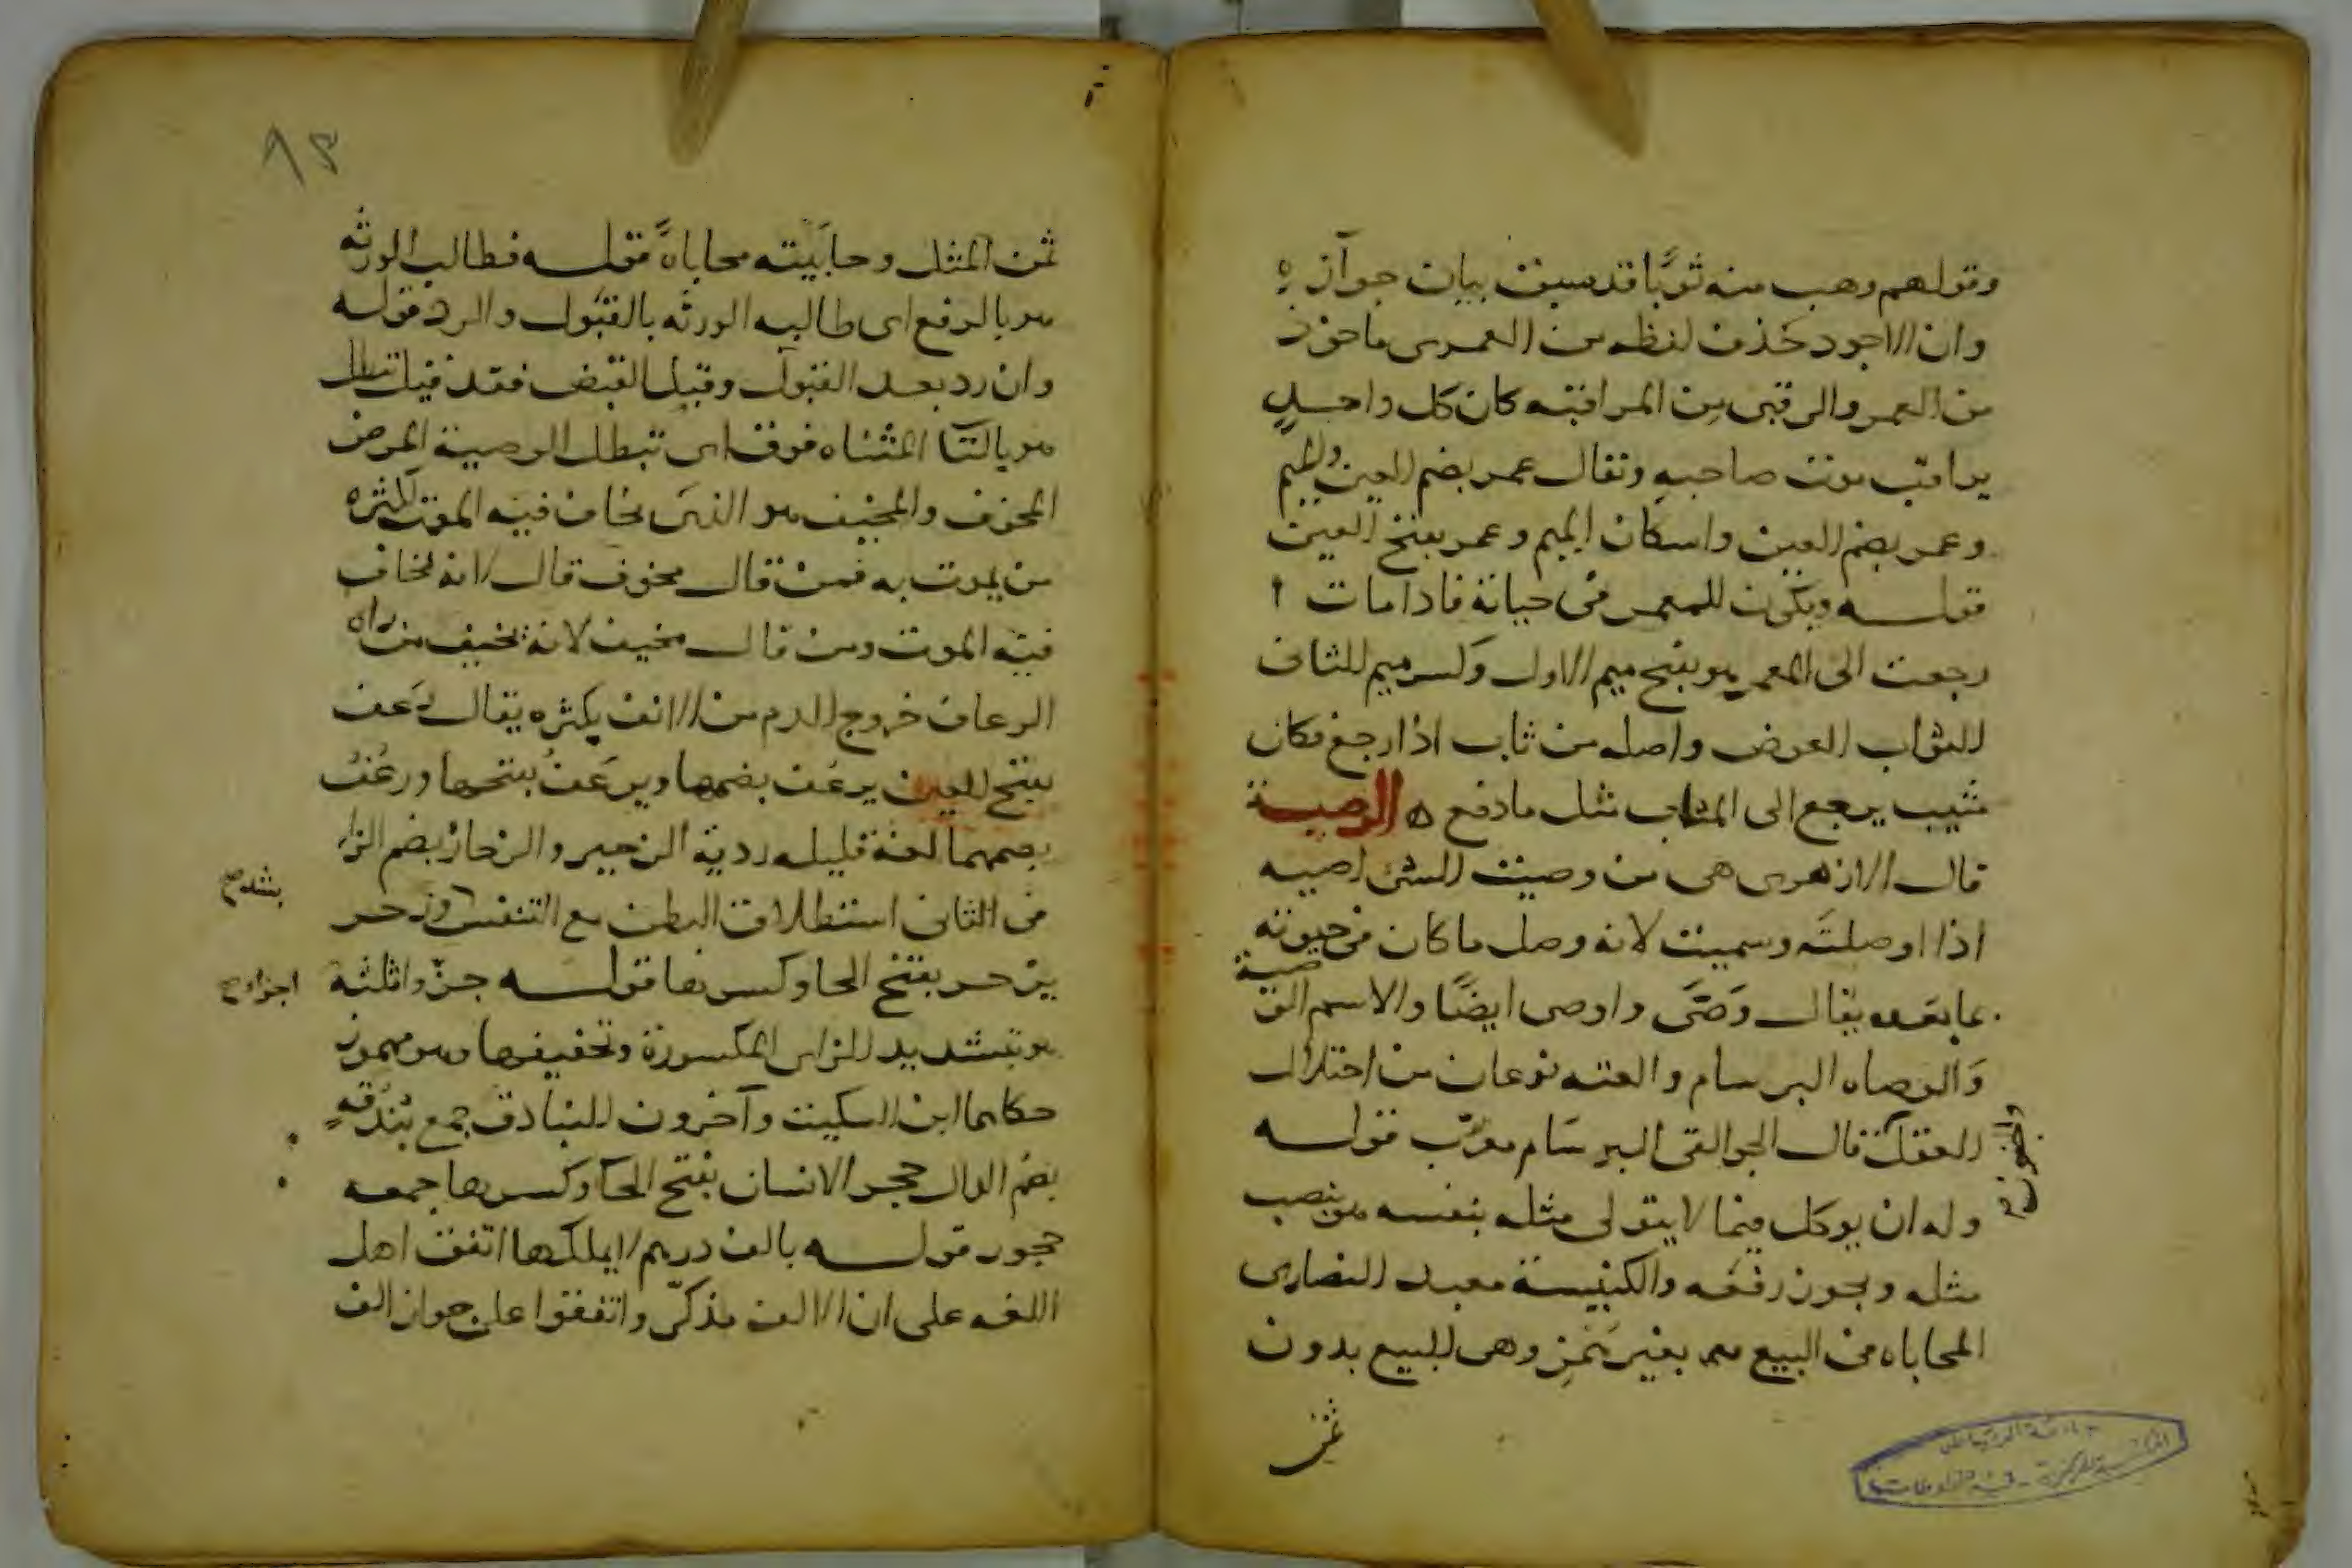 وقولهم وهب منه ثوبًا قد سبق بيان جوازه
وان الاجود حذف لفظه من العمرى ماخوذ
من العمر والرقبى من المراقبه كان كل واحدٍ
يراقب موت صاحبه ويقال عمر بضم العين والميم
وعمر بضم العين واسكان الميم وعمر بفتح العين
قولـــه ويكون للمعمر فى حياته فاذا مات
رجعت الى المعمر هو بفتح ميم الاول وكسر ميم الثانى
الثواب العوض واصله من ثاب اذا رجع فكان
مثيب يرجع الى المثاب مثل ما دفع ه الوصية
قال الازهرى هى من وصيت الشى اصيه
اذا اوصلته وسميت لانه وصل ما كان فى حيوته
بما بعده يقال وَصَّى واوصى ايضًا والاسم الوصية
وَالوصاه البرسام والعته نوعان من اختلال
العقل قال الجواليقى البرسام معرّب قولـــه
وله ان يوكل فيما لا يتولى مثله بنفسه هو بنصب
مثله ويجوز رفعه والكنيسة معبد النصارى
المحاباه فى البيع بغير ثمن وهى البيع بدون
ثمن
٩٢
ثمن المثل وحابَيته محاباةً قولـــه فطالب الورثه
هو بالرفع اى طالبه الورثه بالقبول والرد قوله
وان رد بعد القبول وقبل القبض فقد قيل تبطل
هو بالتآ المثناه فوق اى تبطل الوصية المرض
المخوف والمخيف هو الذى يخاف فيه الموت لكثره
من يموت به فمن قال مخوف قال لانه يخاف
فيه الموت ومن قال مخيف لانه يخيف من راه
الرعاف خروج الدم من الانف بكثره يقال رَعف
بفتح العين يرعُف بضمها ويرعَف بفتحها ورعُف
بضمهما لغة قليله ردية الزحير والزحار بضم الزاى
فى الثانى استطلاق البطن مع التنفس وزحر
بشده صح
يزحر بفتح الحا وكسرها قولـــه جزّوا ثلثة
اجزاء صح
هو بتشديد الزاى المكسورة وتخفيفها وهو مهموز
حكاهما ابن السكيت وآخرون البنادق جمع بُندُقهٍ
بضم الدال حجر الانسان بفتح الحآ وكسرها جمعه
حجور قولـــه بالف درهم لا يملكها اتفق اهل
اللغه على ان الالف مذكّر واتفقوا على جواز الف